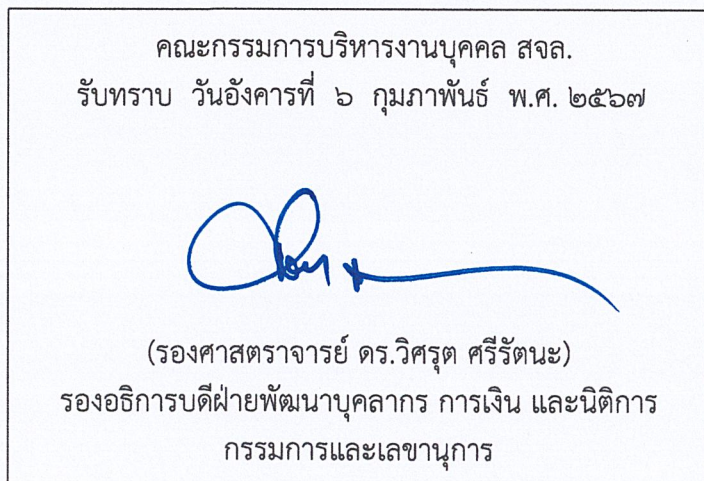 คณะกรรมการบริหารงานบุคคล สจล.
รับทราบ วันอังคารที่ ๖ กุมภาพันธ์ พ.ศ. ๒๕๖๗
(รองศาสตราจารย์ ดร.วิศรุต ศรีรัตนะ)
รองอธิการบดีฝ่ายพัฒนาบุคลากร การเงิน และนิติการ
กรรมการและเลขานุการ